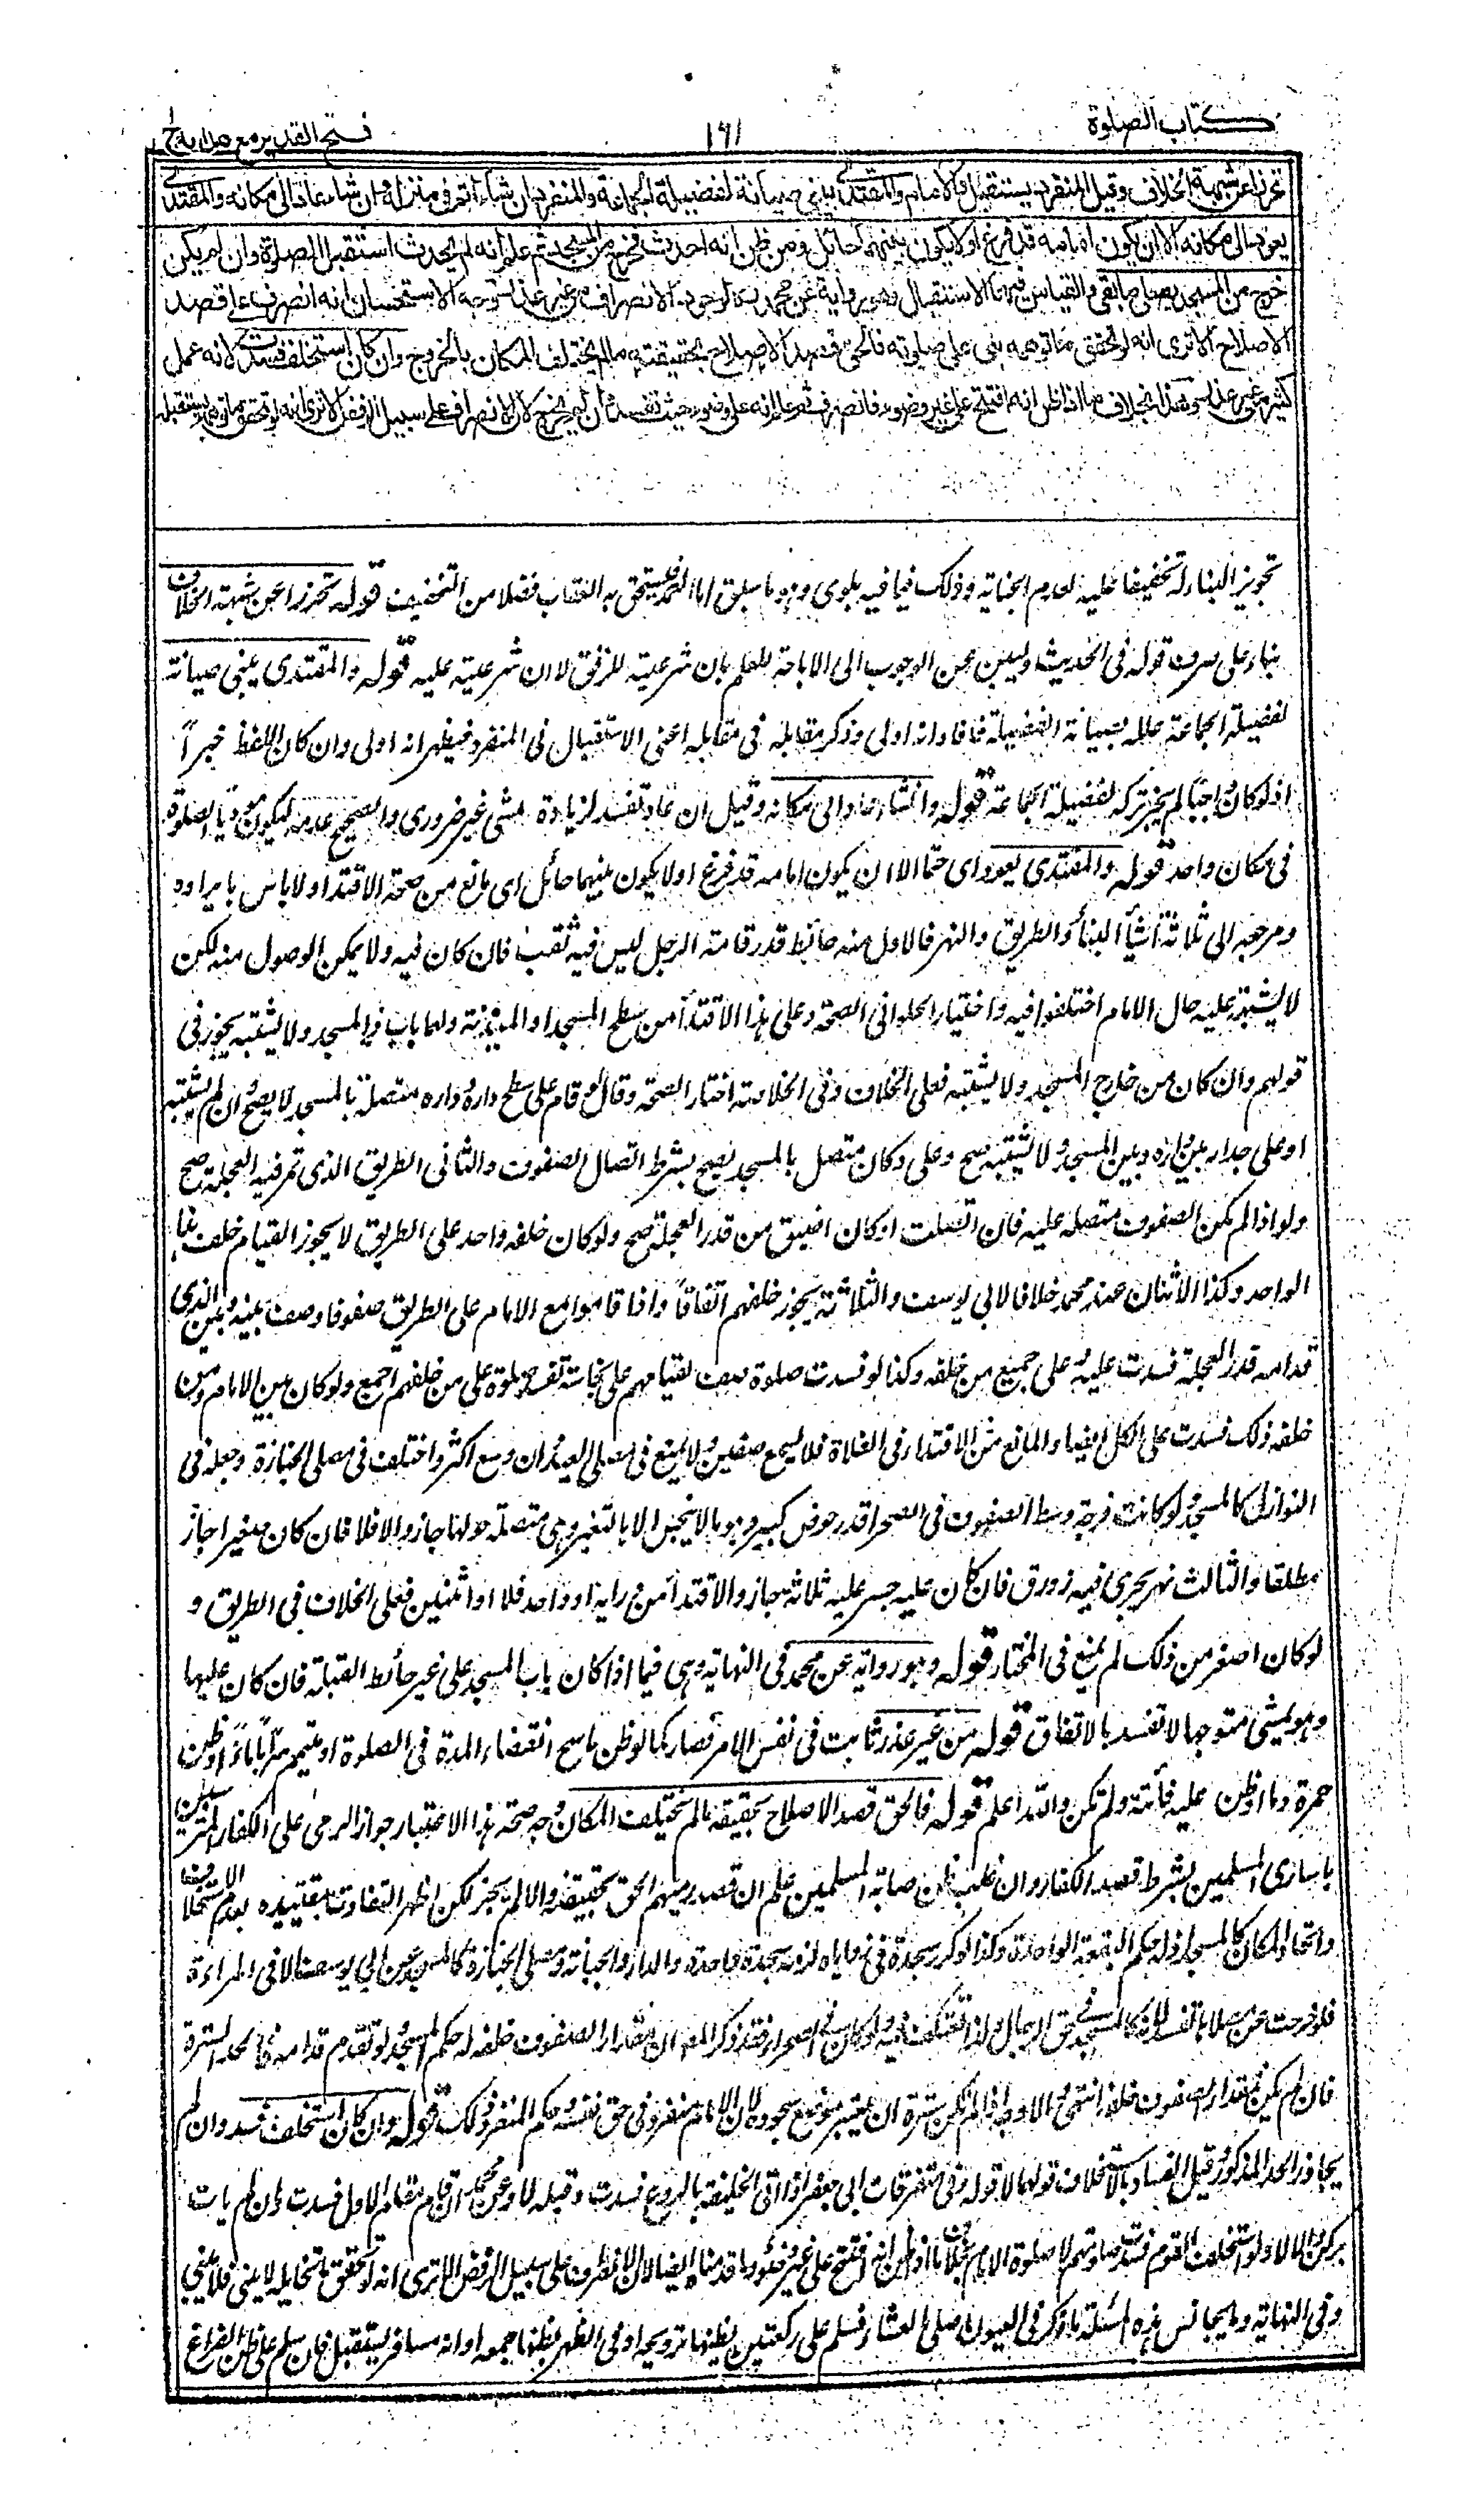 كتاب الصلوة
١٦١
فتح القدير مع هدايه ج١
تحرزا عن شبهة الخلاف وقيل المنفرد يستقبل والامام والمقتدى يبنى صيانة لفضيلة الجماعة والمنفرد ان شاء اتم فى منزله وان شاء عاد الى مكانه والمقتدى
يعود الى مكانه الا ان يكون امامه قد فرغ او لا يكون بينهما حائل ومن ظن انه احدث فخرج من المسجد ثم علم انه لم يحدث استقبل الصلوة وان لم يكن
خرج من المسجد يصلى ما بقى والقياس فيهما الاستقبال وهو رواية عن محمد لوجود الانصراف من غير عذر وجه الاستحسان انه انصرف على قصد
الاصلاح الا ترى انه لو تحقق ما توهمه بنى على صلوته فالحق قصد الاصلاح بحقيقته ما لم يختلف المكان بالخروج وان كان استخلف فسدت لانه عمل
كثير من غير عذر وهذا بخلاف ما اذا ظن انه افتتح على غير وضوء فانصرف ثم علم انه على وضوء حيث تفسد وان لم يخرج لان الانصراف على سبيل الرفض الا ترى انه لو تحقق ما توهمه يستقبله
تجويز البناء له تخفيفا عليه لعدم الجناية وذلك فيما فيه بلوى وهو ما سبق اما العمد فيستحق به العقاب فضلا من التخفيف قوله تحرزا عن شبهة الخلاف
بناء على صرف قوله فى الحديث وليبن عن الوجوب الى الاباحة للعلم بان شرعيته للرفق لا ان شرعيته عليه قوله والمقتدى يبنى صيانة
لفضيلة الجماعة علله بصيانة الفضيلة فافاد انه اولى وذكر مقابله فى مقابله اعنى الاستقبال فى المنفرد فيظهر انه اولى وان كان اللفظ خبراً
اذ لو كان واجبا لم يجز تركه لفضيلة الجماعة قوله وان شاء عاد الى مكانه وقيل ان عاد تفسد لزيادة مشى غير ضرورى والصحيح عدمه ليكون مؤديا الصلوة
فى مكان واحد قوله والمقتدى يعود اى حتما الا ان يكون امامه قد فرغ او لا يكون بينهما حائل اى مانع من صحة الاقتداء ولا باس بايراده
ومرجعه الى ثلاثة اشيأ البنأ والطريق والنهر فالاول منه حائط قدر قامة الرجل ليس فيه ثقب فان كان فيه ولا يمكن الوصول منه لكن
لا يشتبه عليه حال الامام اختلفوا فيه واختيار الحلوانى الصحة وعلى هذا الاقتدأ من سطح المسجد او المئذنة ولهما باب فى المسجد ولا يشتبه يجوز فى
قولهم وان كان من خارج المسجد ولا يشتبه فعلى الخلاف وفى الخلاصة اختار الصحة وقال لو قام على سطح داره وداره متصلة بالمسجد لا يصح وان لم يشتبه
او على جدار بين داره وبين المسجد ولا يشتبه صح وعلى دكان متصل بالمسجد يصح بشرط اتصال الصفوف والثانى الطريق الذى تمر فيه العجلة صح
ولو اذا لم تكن الصفوف متصلة عليه فان اتصلت او كان اضيق من قدر العجلة صح ولو كان خلفه واحد على الطريق لا يجوز القيام خلف هذا
الواحد وكذا الاثنان عند محمد خلافا لابى يوسف والثلاثة يجوز خلفهم اتفاقاً واذا قاموا مع الامام على الطريق صفوفا وصف بينه وبين الذى
قدامه قدر العجلة فسدت عليه وعلى جميع من خلفه وكذا لو فسدت صلوة صف لقيامهم على نجاسة تفسد صلوة على من خلفهم اجمع ولو كان بين الامام ومن
خلفه ذلك فسدت على الكل ايضا والمانع من الاقتداء فى الفلاة فلا يسع صفين ولا يمنع فى مصلى العيد وان وسع اكثر واختلف فى مصلى الجنازة وجعله فى
النوازل كالمسجد ولو كانت فرجة وسط الصفوف فى الصحرا قدر حوض كبير وهو ما لا ينجس الا بالتغير وهى متصلة حولها جاز والا فلا فان كان صغيرا جاز
مطلقا والثالث نهر يجرى فيه زورق فان كان عليه جسر عليه ثلاثة جاز والاقتدأ من رايه او واحد فلا او اثنين فعلى الخلاف فى الطريق و
لو كان اصغر من ذلك لم يمنع فى المختار قوله وهو رواية عن محمد فى النهاية وهى فيما اذا كان باب المسجد على غير حائط القبلة فان كان عليها
وهو يمشى متوجها لا تفسد بالاتفاق قوله من غير عذر ثابت فى نفس الامر فصار كما لو ظن ماسح انقضاء المدة فى الصلوة او متيمم سراباً ماءً او ظن
حمرة دما او ظن عليه فائتة ولم تكن والله اعلم قوله فالحق قصد الاصلاح بحقيقة ما لم يختلف المكان وجه صحة هذا الاعتبار جواز الرمى على الكفار المتترسين
باسارى المسلمين بشرط قصد الكفار وان غلب ظن اصابة المسلمين علم ان قصد رميهم الحق بحقيقة والا لم يجز لكن اظهر التفاوت بتقييده بعدم الاستخلاف
واتحاد المكان كالمسجد اذ له حكم البقعة الواحدة وكذا لو كرر سجدة فى زواياه لزمه سجدة واحدة والدار والجبانة ومصلى الجنازة كالمسجد عن ابى يوسف الا فى المراءة
فلو خرجت عن مصلاها تفسد لانه كالمسجد فى حق الرجال ولذا تعتكف فيه ولو كان فى الصحراء فقد ذكر المصنف ان مقدار الصفوف خلفه له حكم المسجد ولو تقدم قدامه فالحد السترة
فان لم يكن فمقدار الصفوف خلفه انتهى والاوجه اذا لم تكن سترة ان يعتبر موضع سجوده لان الامام منفرد فى حق نفسه وحكم المنفرد ذلك قوله وان كان استخلف فسدت وان لم
يجاوز الحد المذكور وقيل الفساد بالاستخلاف قولهما لا قوله وفى متفرقات ابى جعفر اذا اتى الخليفة بالركوع فسدت وقبله لا وعن محمد ان قام مقام الاول فسدت وان لم يات
بركن والا لا ولو استخلف القوم فسدت صلوتهم لا صلوة الامام بخلاف ما اذا ظن انه افتتح على غير وضوء وما قدمنا ايضا لان الانصراف على سبيل الرفض الا ترى انه لو تحقق ما تخايله لا يبنى فلا يبنى
وفى النهاية ومما يجانس هذه المسئلة ما ذكر فى العيون صلى العشاء فسلم على ركعتين يظنها ترويحة او فى الظهر يظنها جمعه او انه مسافر يستقبل فان سلم على ظن الفراغ